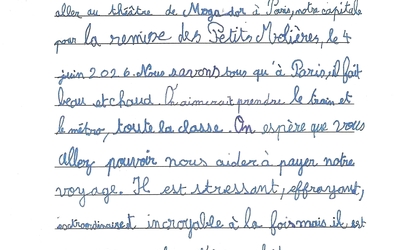 aller au théâtre de Mogador à Paris, notre capitale
pour la remise des Petits Molières, le 4
juin 2026. Nous savons tous qu'à Paris, il fait
beau et chaud. On aimerait prendre le train et
le métro, toute la classe. On espère que vous
allez pouvoir nous aider à payer notre
voyage. Il est stressant, effrayant,
extraordinaire et incroyable à la fois mais il est